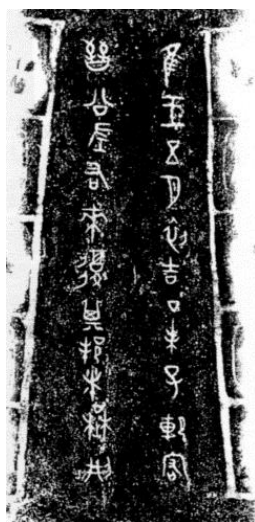 隹王五月初吉丁未子犯宕
晉公左右來復其邦者楚荊